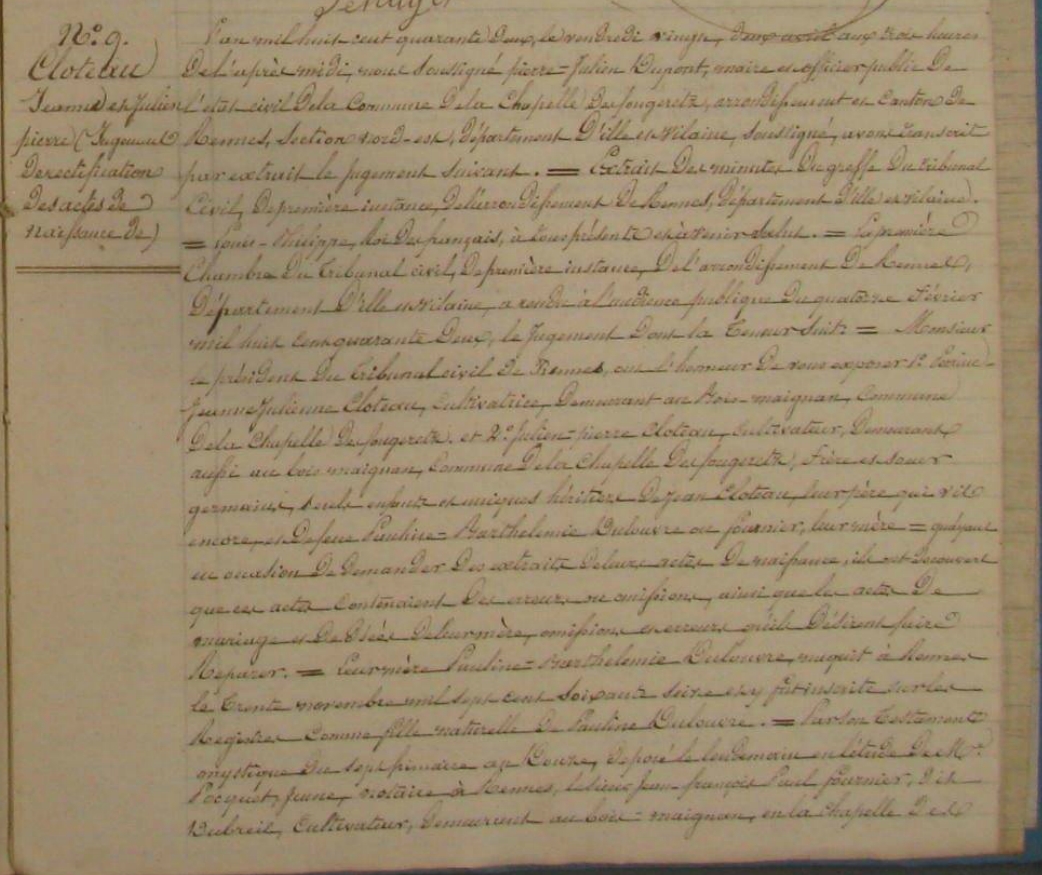 N.o 9.
Cloteau
Jeanne et Julien
pierre (Jugement
De rectification
Des actes de
naissance de)
L'an mil huit cent quarante Deux, le vendredi vingt Deux avril aux trois heures
De l'après midi, nous soussigné pierre-Julien Dupont, maire et officier public De
l'état civil Dela Commune Dela Chapelle Des fougeretz, arrondissement et Canton De
Rennes, Section Nord-est, Département D'ille et vilaine, soussigné, avons transcrit
par extrait le jugement suivant. = Extrait Des minutes Du greffe Du tribunal
Civil, De première instance, Del'arrondissement De Rennes, Département D'ille et vilaine.
= Louis-Philippe, Roi Des français, à tous présents et à venir salut. = La première
Chambre Du Tribunal civil, De première instance, De l'arrondissement De Rennes,
Département D'ille et vilaine, a rendu à l'audience publique Du quatorze Février
mil huit Cent quarante Deux, le Jugement Dont la Teneur Suit: = Monsieur
le président Du Tribunal civil De Rennes, ont l'honneur De vous exposer 1.o Perrine-
Jeanne Julienne Cloteau, Cultivatrice, Demeurant au Bois-maignan, Commune
Dela Chapelle Des fougeretz. et 2.o Julien-pierre Cloteau, Cultivateur, Demeurant,
aussi au bois-maignan, Commune Dela Chapelle Des fougeretz, Frère et soeur
germains, seuls enfants et uniques héritiers De Jean Cloteau, leur père qui vit
encore, et Defunte Pauline-Barthelemie Dulouvre ou fournier, leur mère = qu'ayant
eu occasion De Demander Des extraits Deleurs actes De naissance, ils ont Découvert
que ces actes Contenaient Des erreurs ou omissions, ainsi que les actes De
mariage et De Décès Deleur mère, omissions et erreurs qu'ils Désirent faire
Réparer. = Leur mère Pauline-Barthelemie Dulouvre, naquit à Rennes
le Trente novembre mil sept cent Soixante seize et y fut inscrite sur les
Registres Comme fille naturelle De Pauline Dulouvre. = Par son Testament
mystique Du sept frimaire an Douze, Déposé le lendemain en l'étude De M.e
Pocquet, Jeune, notaire à Rennes, le sieur Jean françois Paul fournier, Dit
Dubreil, Cultivateur, Demeurant au bois-maignan, en la chapelle Des